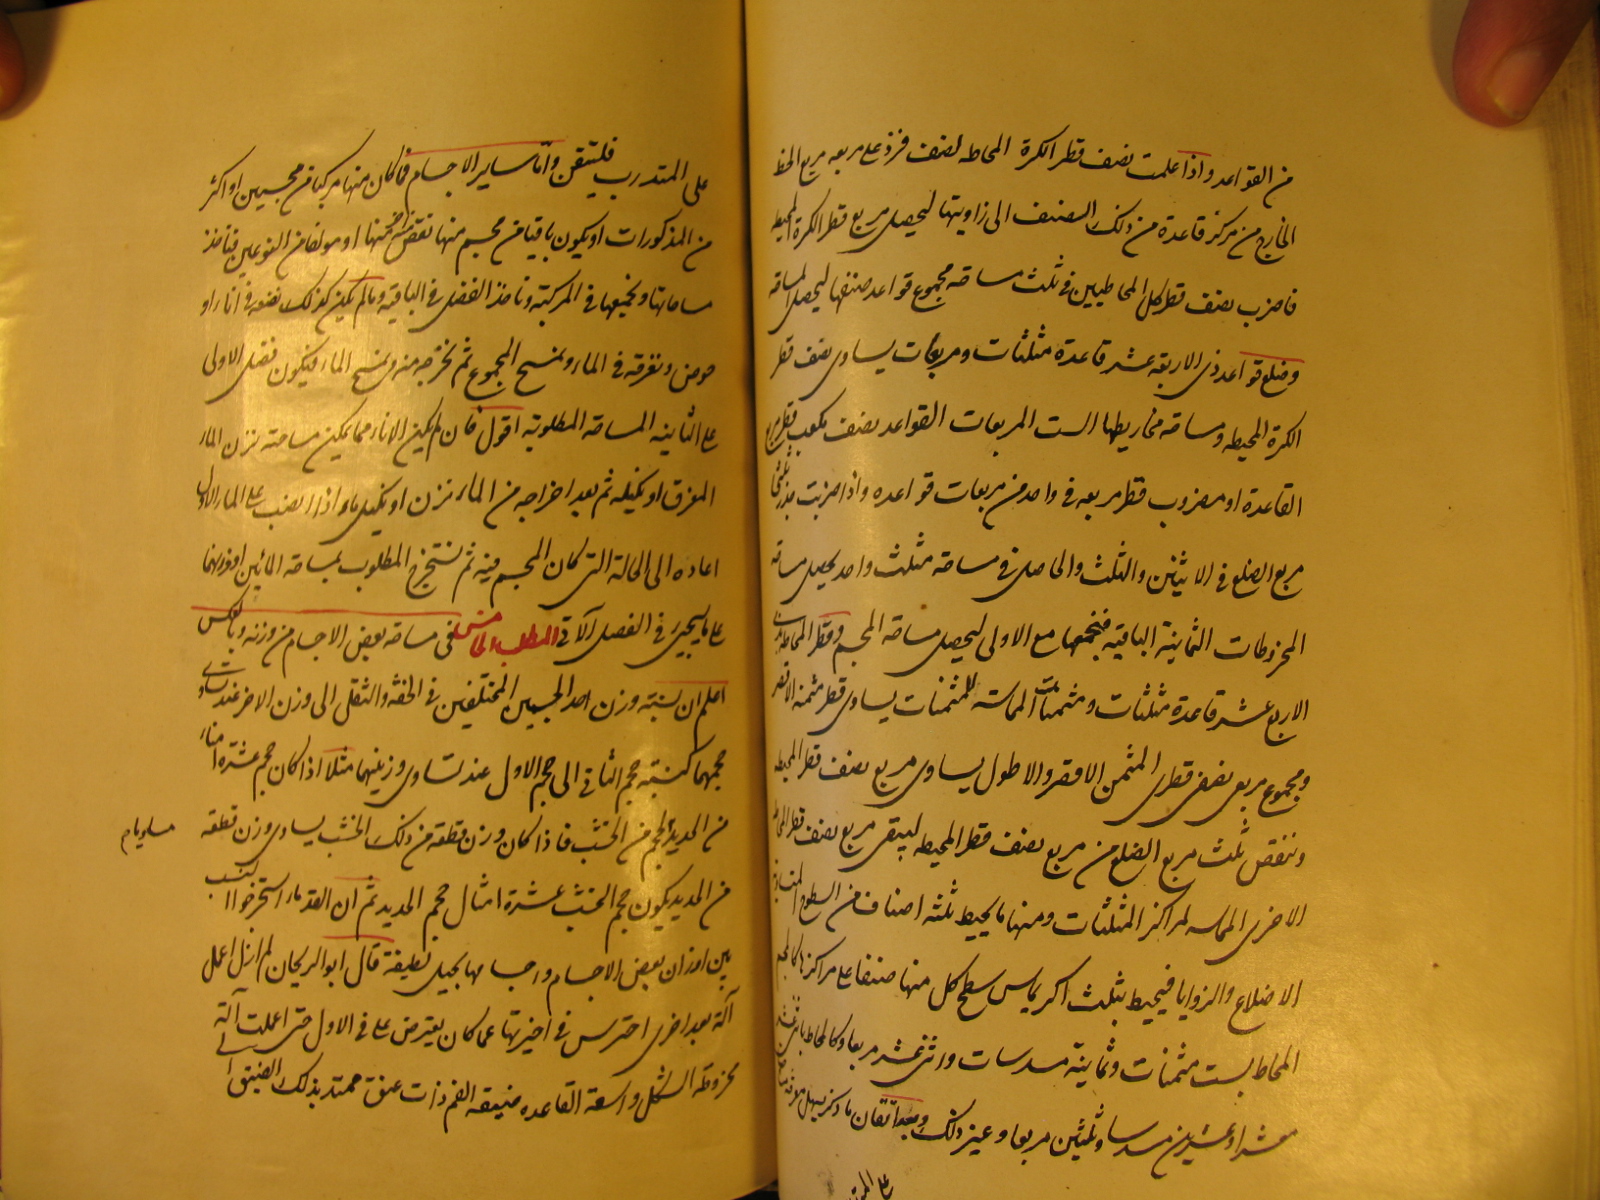 من القواعد واذا علمت نصف قطر الكرة المحاطه لصنف فزد على مربعه مربع الخط
الخارج من مركز قاعدة من ذلك الصنف الى زاويتها ليحصل مربع قطر الكرة المحيطه
فاضرب نصف قطر كل المحاطيين في ثلث مساحه مجموع قواعد صنفها ليحصل المساحه
وضلع قواعد ذى الاربعة عشر قاعدة مثلثات ومربعات يساوى نصف قطر
الكرة المحيطه ومساحه مخاريطها الست المربعات القواعد نصف مكعب قطر مربع
القاعدة او مضروب قطر مربعه في واحد من مربعات قواعده واذا ضربت جذر ثلثى
مربع الضلع في الاثنين والثلث والحاصل في مساحه مثلث واحد يحصل مساحه
المخروطات الثمانية الباقيه فنجمعها مع الاولى ليحصل مساحه المجسم وقطر المحاطه بذى
الاربع عشر قاعدة مثلثات ومثمنات المماسه للمثمنات يساوى قطر مثمنه الاقصر
ومجموع مربعى نصفى قطرى المثمن الاقصر والاطول يساوى مربع نصف قطر المحيطه
وننقص ثلث مربع الضلع من مربع نصف قطر المحيطه ليبقى مربع نصف قطر المحاطه
الاخرى المماسه لمراكز المثلثات ومنها ما يحيط ثلثه اصناف من السطوح المتساوية
الاضلاع والزوايا فيحيط بثلث اكر يماس سطح كل منها صنفا على مراكزها كالمجسم
المحاط بست مثمنات وثمانية مسدسات واثنى عشر مربعا وكالمحاط باثنى عشر
معشرا وعشرين مسدسا وثلثين مربعا وغير ذلك وبعد اتقان ما ذكر يسهل معرفة
على المتدرب
على المتدرب فليتيقن واما ساير الاجسام فما كان منها مركبا من مجسمين او اكثر
من المذكورات او يكون باقيا من مجسم منها نقص مجسم منها او مولفا من النوعين فناخذ
مساحاتها ونجمعها في المركبة وناخذ الفضل في الباقية وما لم يكن كذلك نضعه في اناء او
حوض ونغرقه في الماء ونمسح المجموع ثم نخرجه منه ونمسح الماء فيكون فضل الاولى
على الثانيه المساحه المطلوبة اقول فان لم يكن الاناء مما يمكن مساحته نزن الماء
المغرق او نكيله ثم بعد اخراجه من الماء نزن او نكيل ماء اذا انصب على الماء الاول
اعاده الى الحالة التى كان المجسم فيه ثم نستخرج المطلوب بمساحه المائين او وزنهما
على ما يجيئ في الفصل الآتى المطلب الخامس في مساحه بعض الاجسام من وزنه وبالعكس
اعلم ان نسبة وزن احد الجسمين المختلفين في الخفه والثقل الى وزن الاخر عند تساوى
حجمهما كنسبة حجم الثانى الى حجم الاول عند تساوى وزنيهما مثلا اذا كان حجم عشرة امناء
من الحديد كحجم من الخشب فاذا كان وزن قطعه من ذلك الخشب يساوى وزن قطعه
من الحديد يكون حجم الخشب عشرة امثال حجم الحديد ثم ان القدماء استخرجوا النسب
بين اوزان بعض الاجسام واحجامها بحيل لطيفة قال ابو الريحان لم ازل اعمل
آلة بعد اخرى احترس في اخيرتها عما كان يعترض على في الاول حتى اعملت آلة
مخروطه الشكل واسعة القاعده ضيقه الفم ذات عنق ممتد بذلك الضيق الى